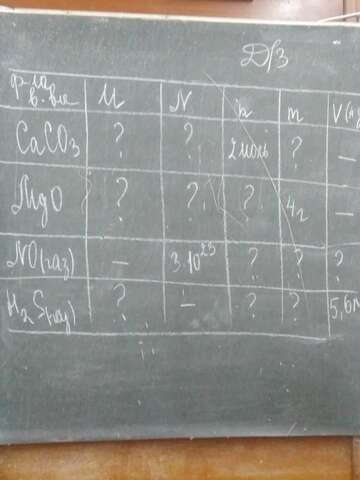 Д/З
ф-ла в-ва M N n m V(н
CaCO3 ? ? 2 моль ? –
MgO ? ? ? 4г –
NO(газ) – 3·10²³ ? ? ?
H2S(газ) ? – ? ? 5,6л